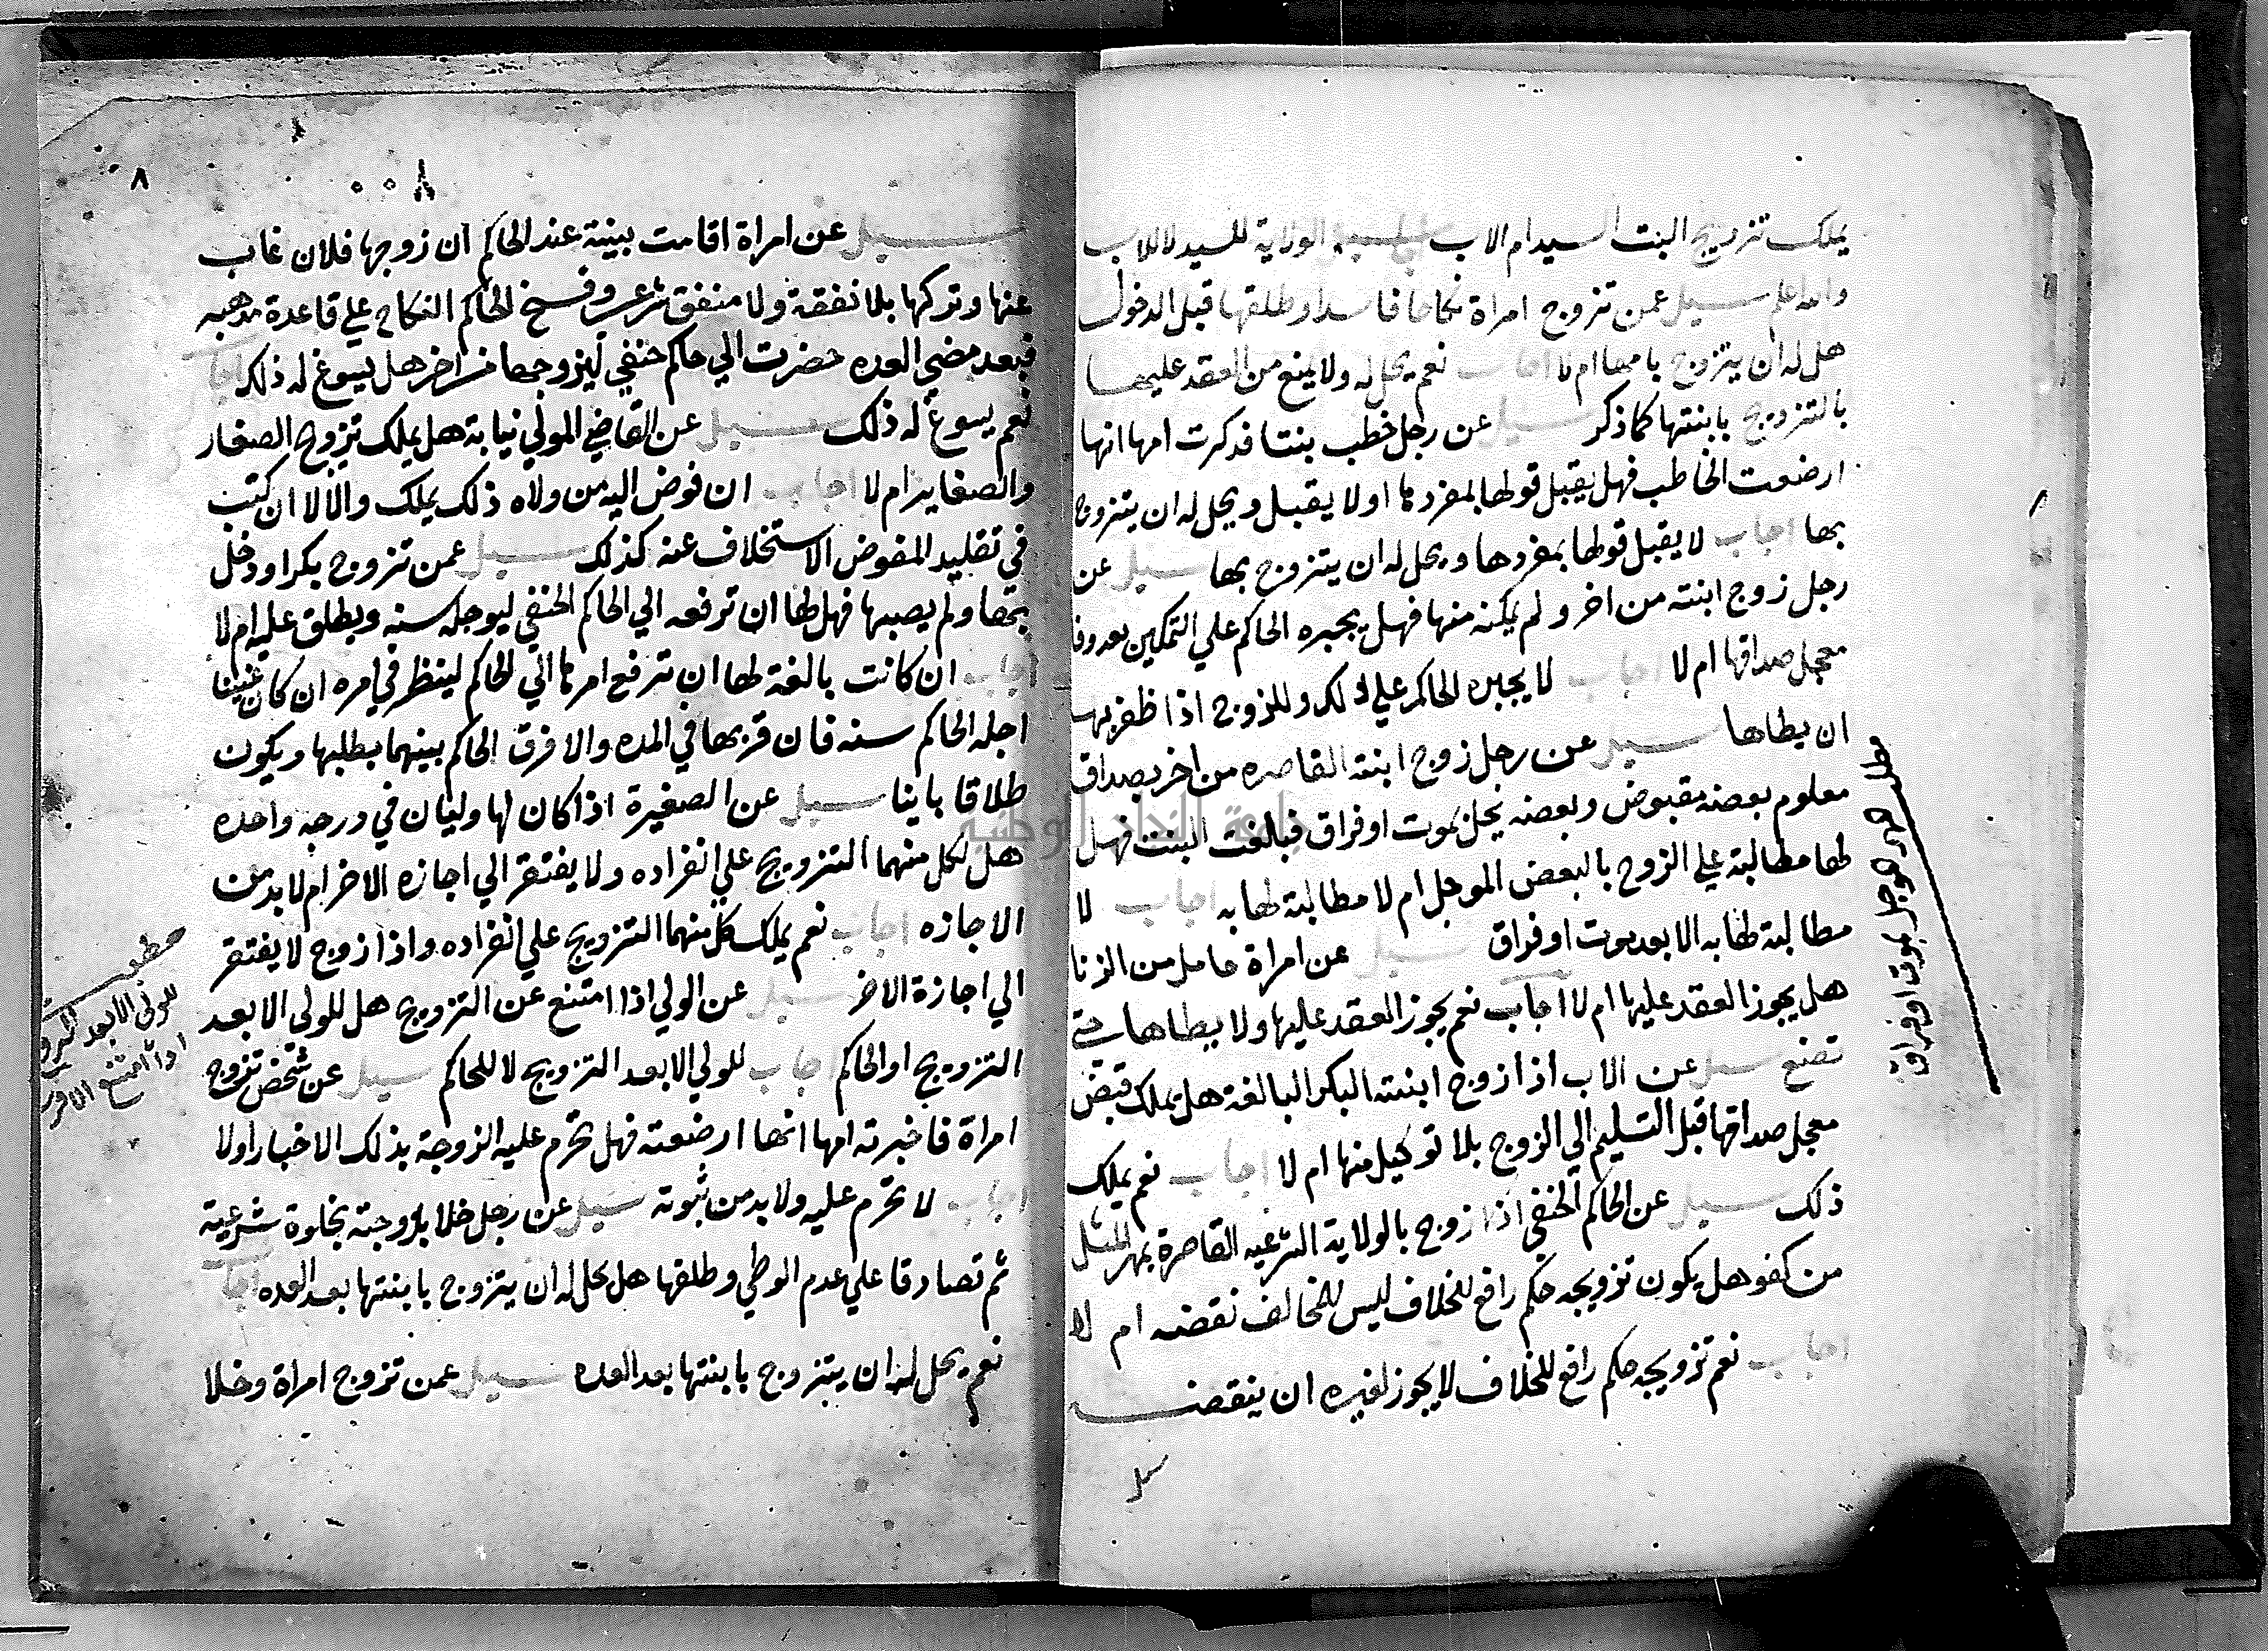 يملك تزويج البنت السيد ام الاب اجاب الولاية للسيد لا للاب
والله اعلم سيل عمن تزوج امراة نكاحا فاسدا وطلقها قبل الدخول
هل له ان يتزوج بامها ام لا اجاب نعم يحل له ولا يمنع من العقد عليها
بالتزوج بابنتها كما ذكر سيل عن رجل خطب بنتا فذكرت امها انها
ارضعت الخاطب فهل يقبل قولها بمفردها او لا يقبل ويحل له ان يتزوج
بها اجاب لا يقبل قولها بمفردها ويحل له ان يتزوج بها سيل عن
رجل زوج ابنته من اخر ولم يمكنه منها فهل يجبره الحاكم علي التمكين بعد وفا
معجل صداقها ام لا اجاب لا يجبره الحاكم علي ذلك وللزوج اذا ظفر بها
ان يطاها سيل عن رجل زوج ابنته القاصره من اخر بصداق
معلوم بعضه مقبوض وبعضه يحل بموت او فراق فبالغت البنت فهل
لها مطالبة علي الزوج بالبعض الموجل ام لا مطالبة لها به اجاب لا
مطالبة لها به الا بعد موت او فراق سيل عن امراة حامل من الزنا
هل يجوز العقد عليها ام لا اجاب نعم يجوز العقد عليها ولا يطاها حتي
تضع سيل عن الاب اذا زوج ابنته البكر البالغة هل يملك قبض
معجل صداقها قبل التسليم الي الزوج بلا توكيل منها ام لا اجاب نعم يملك
ذلك سيل عن الحاكم الحنفي اذا زوج بالولاية الشرعيه القاصرة بمهر المثل
من كفو هل يكون تزويجه حكم رافع للخلاف ليس للمخالف نقضه ام لا
اجاب نعم تزويجه حكم رافع للخلاف لا يجوز لغيره ان ينقضه
سيل
موجل بموت او فراق
٨
٨٠٠
سيل عن امراة اقامت بينة عند الحاكم ان زوجها فلان غاب
عنها وتركها بلا نفقة ولا منفق شرعي وفسخ الحاكم النكاح علي قاعدة مذهبه
فبعد مضي العده حضرت الي حاكم حنفي ليزوجها من اخر هل يسوغ له ذلك اجاب
نعم يسوغ له ذلك سيل عن القاضي المولي نيابة هل يملك تزوج الصغار
والصغاير ام لا اجاب ان فوض اليه من ولاه ذلك يملك والا لا ان كتب
في تقليد المفوض الاستخلاف عنه كذلك سيل عمن تزوج بكرا ودخل
بها ولم يصبها فهل لها ان ترفعه الي الحاكم الحنفي ليوجله سنه ويطلق عليه ام لا
اجاب ان كانت بالغة لها ان ترفع امرها الي الحاكم لينظر في امره ان كان عنينا
اجله الحاكم سنه فان قربها في المده والا فرق الحاكم بينهما بطلبها ويكون
طلاقا باينا سيل عن الصغيرة اذا كان لها وليان في درجه واحده
هل لكل منهما التزويج علي انفراده ولا يفتقر الي اجازه الاخر ام لا بد من
الاجازه اجاب نعم يملك كل منهما التزويج علي انفراده واذا زوج لا يفتقر
الي اجازة الاخر سيل عن الولي اذا امتنع عن التزويج هل للولي الابعد
التزويج او الحاكم اجاب للولي الابعد التزويج لا للحاكم سيل عن شخص تزوج
امراة فاخبرته امها انها ارضعته فهل تحرم عليه الزوجة بذلك الاخبار او لا
اجاب لا تحرم عليه ولا بد من ثبوته سيل عن رجل خلا بزوجته بخلوة شرعية
ثم تصادقا علي عدم الوطي وطلقها هل يحل له ان يتزوج بابنتها بعد العده اجاب
نعم يحل له ان يتزوج بابنتها بعد العده سيل عمن تزوج امراة وخلا
مطلب
للولي الابعد التزويج
اذا امتنع الاقرب
جامعة النجاح الوطنية